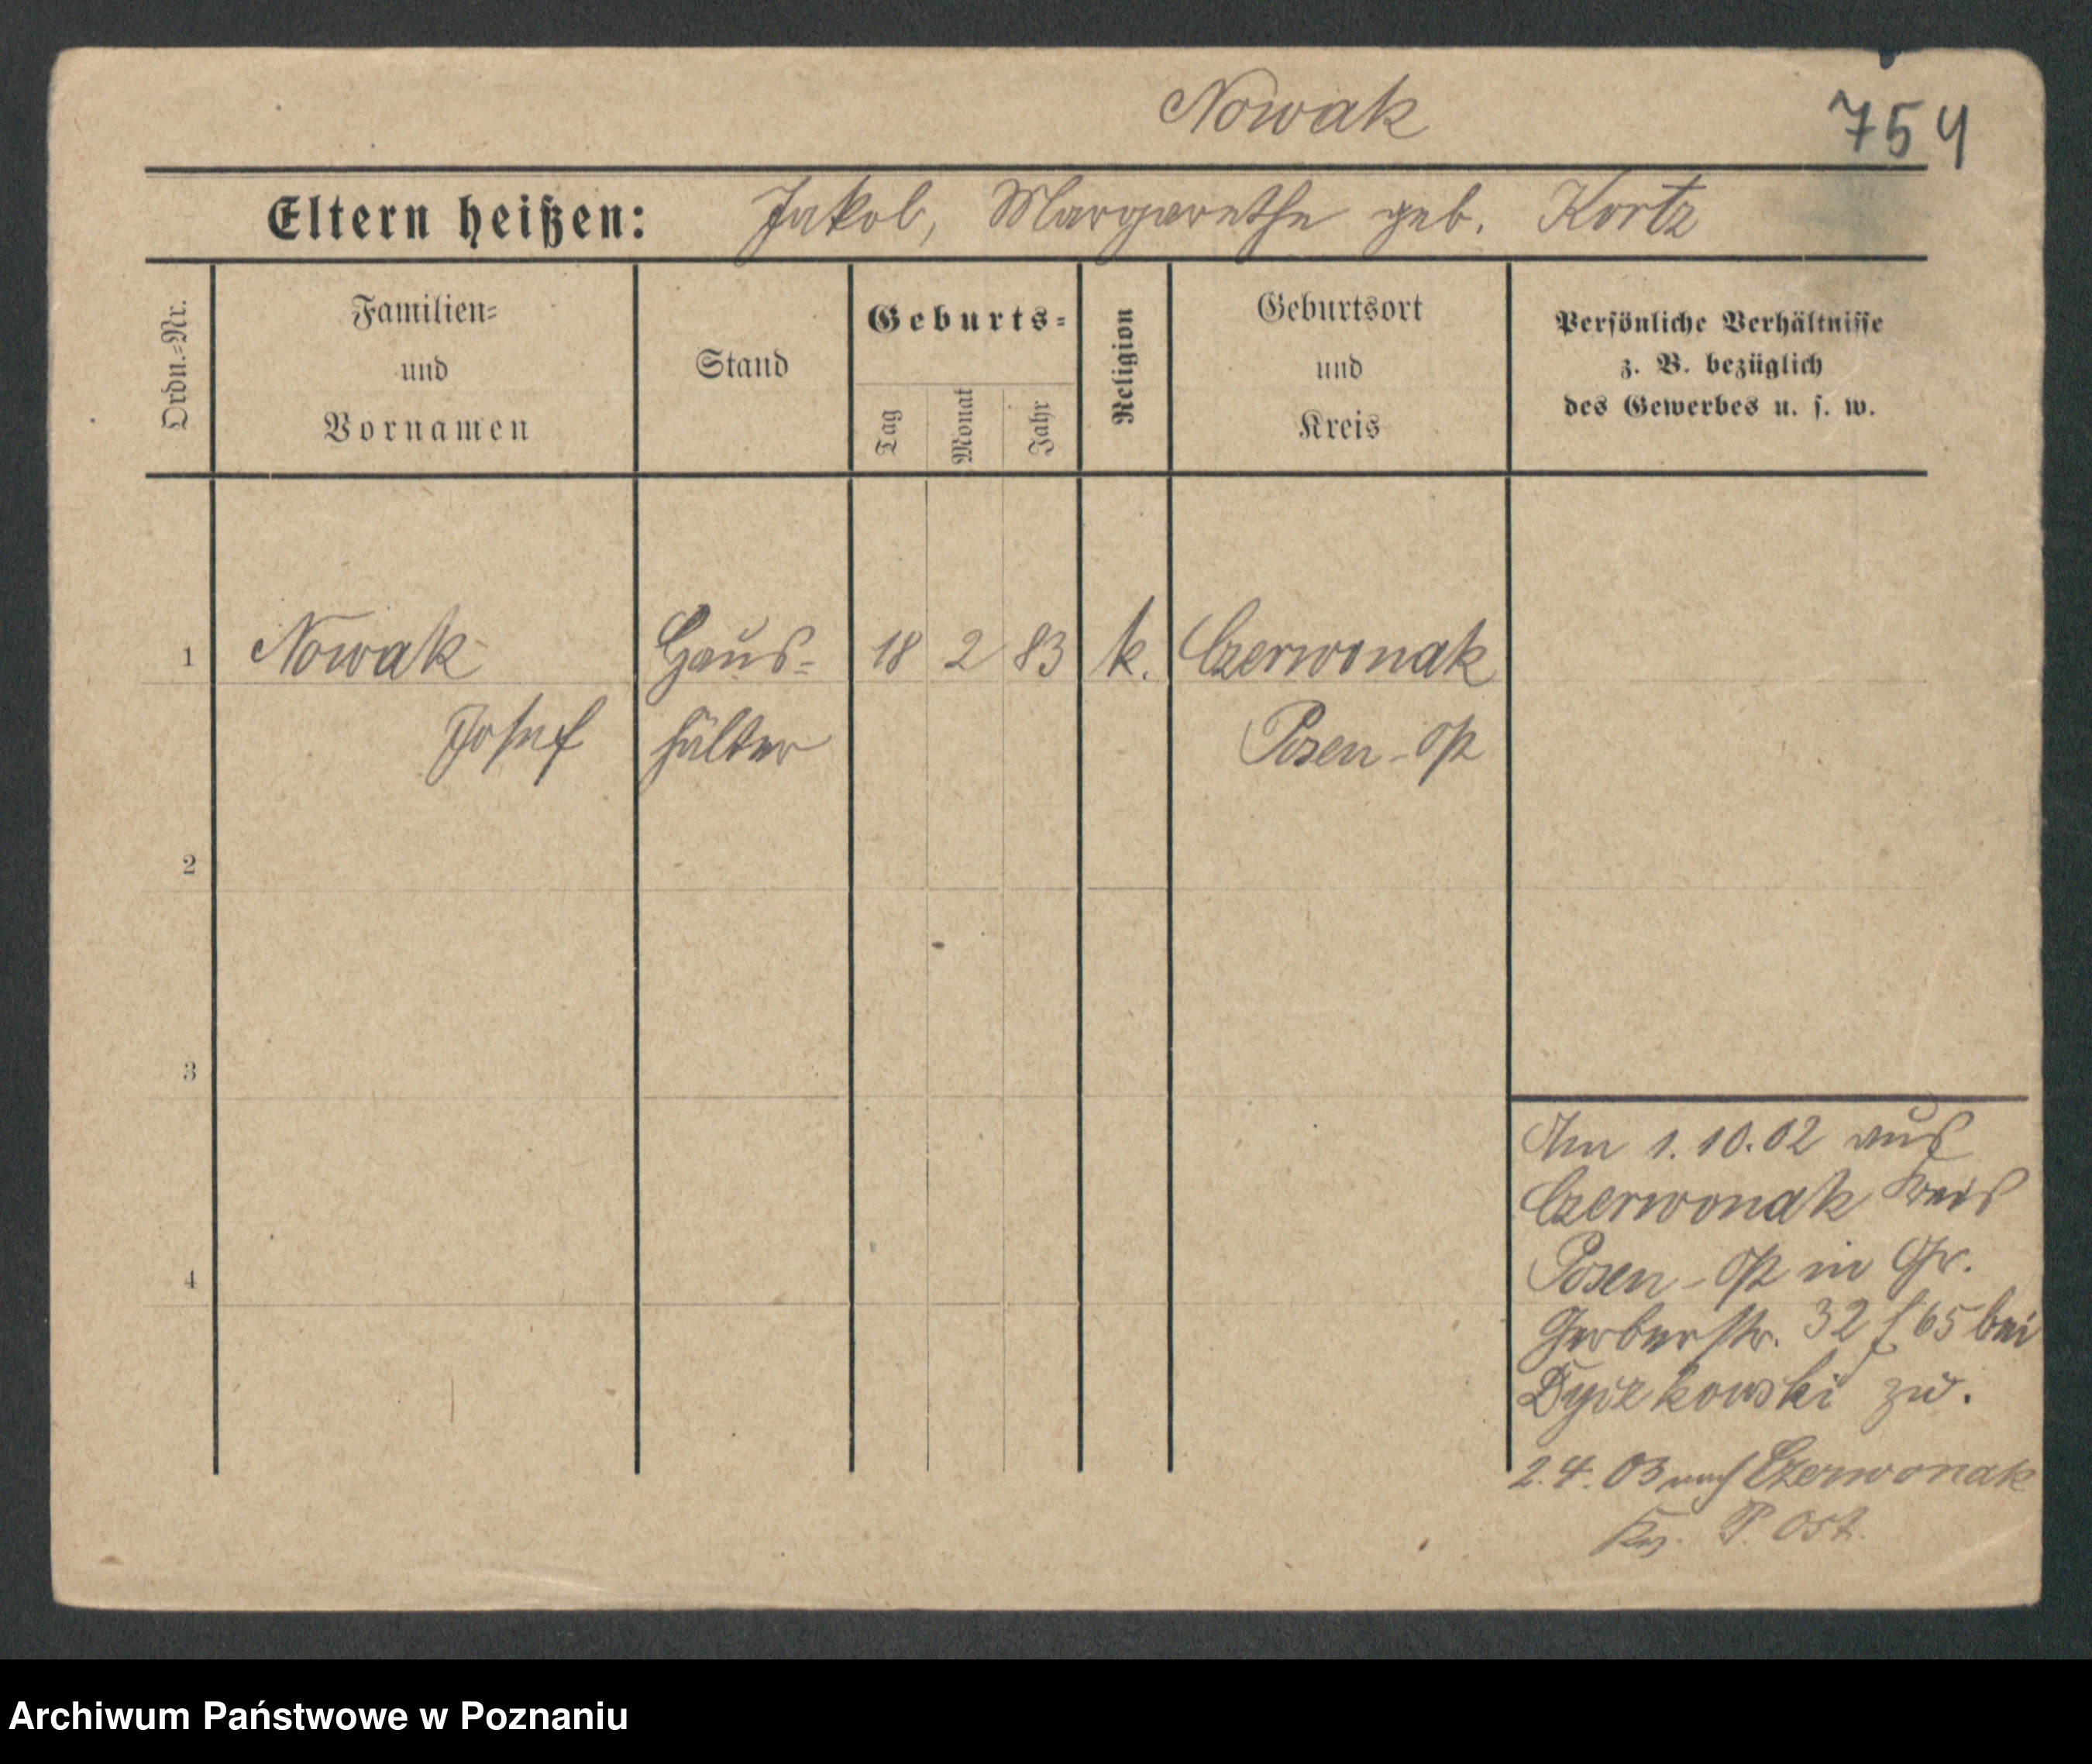 Nowak
754
Eltern heißen: Jakob, Margarethe geb. Kortz
Ordn.-Nr.
Familien-
und
Vornamen
Stand
Geburts-
Tag
Monat
Jahr
Religion
Geburtsort
und
Kreis
Persönliche Verhältnisse
z. B. bezüglich
des Gewerbes u. s. w.
1 Nowak Haus- 18 2 83 k. Czerwonak
Josef hälter Posen-Ost
2
3
4
Am 1.10.02 aus
Czerwonak Kreis
Posen-Ost in Gr.
Gerberstr. 32 f 65 bei
zu.
2.4.03 nach Czerwonak
P. Ost.
Archiwum Państwowe w Poznaniu